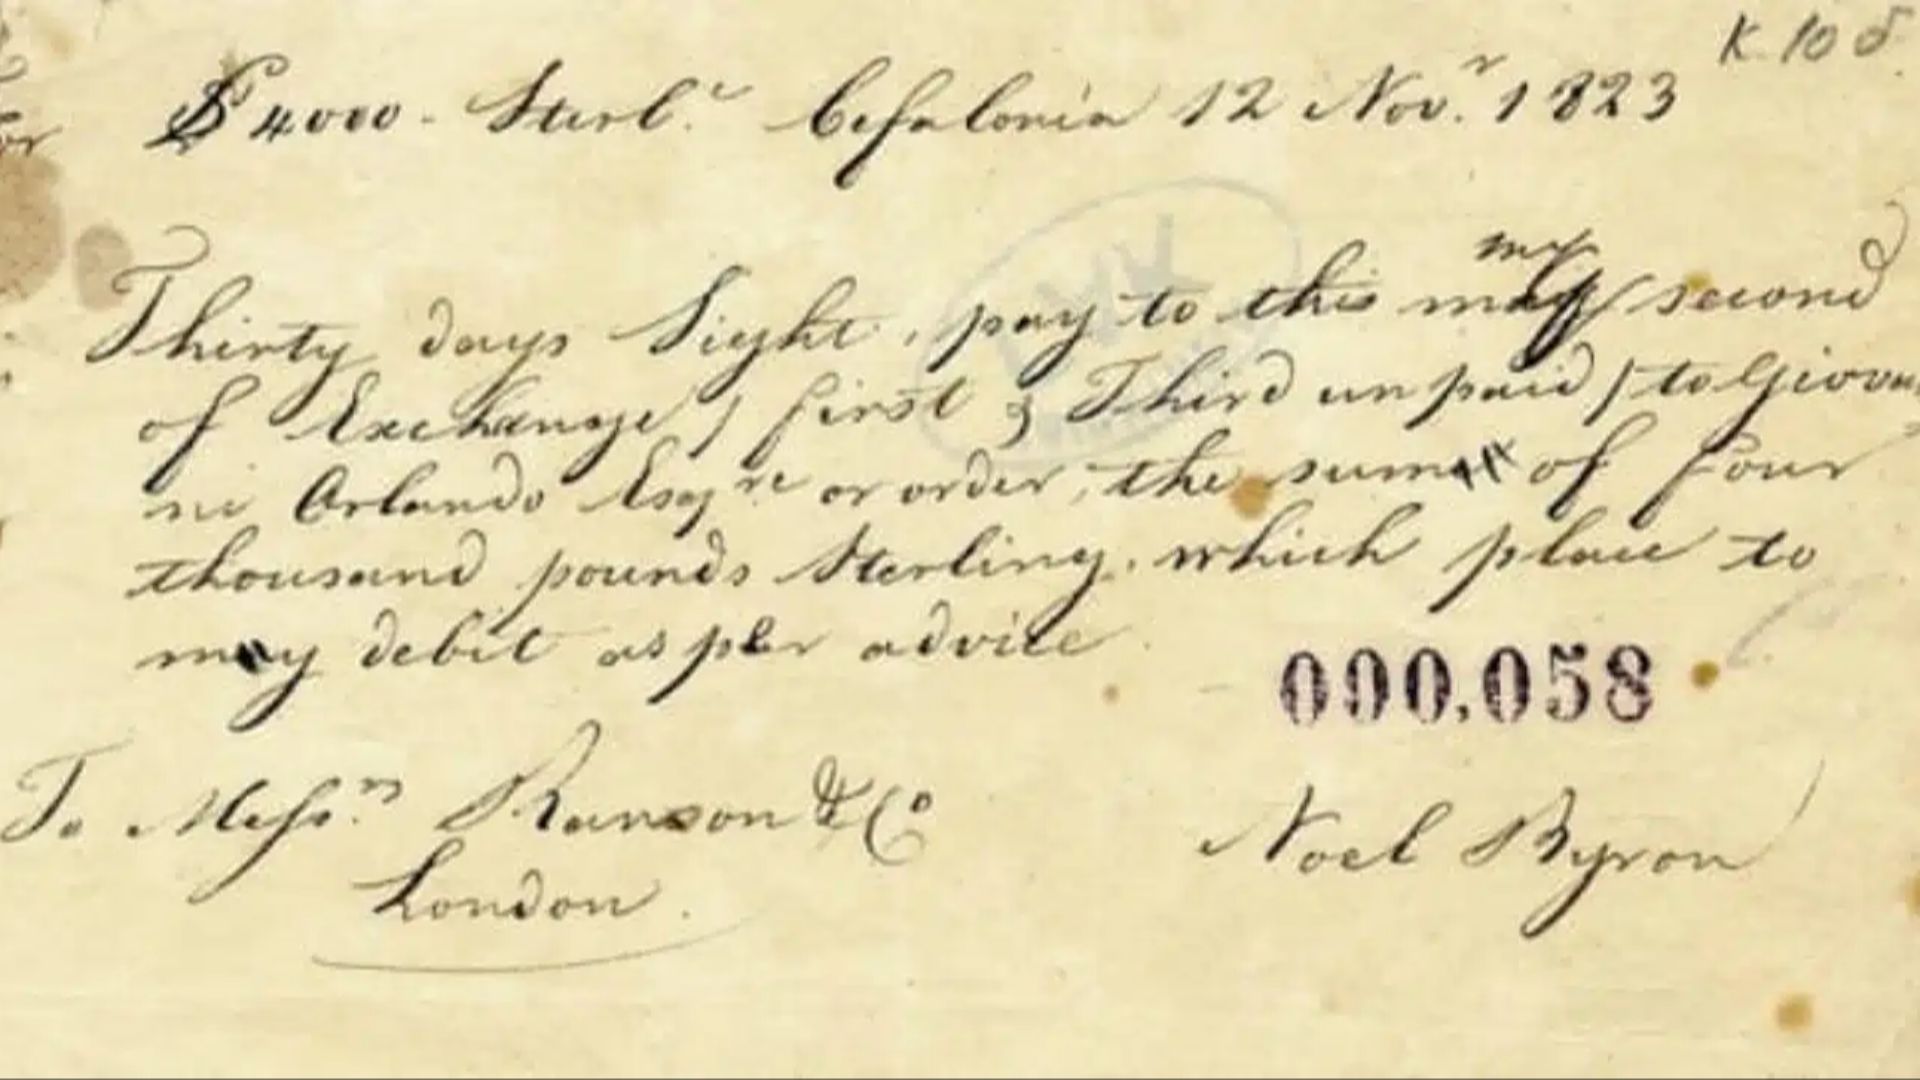 K. 10 5.
£ 4000 - Sterl.g Cefalonia 12 Nov.r 1823
Thirty days Sight, pay to this my second
of Exchange / first & Third unpaid / to Giovan
ni Orlando Esqre or order, the sum of four
thousand pounds Sterling. which place to
my debit as per advice.
000,058
To Messrs Ranson & Co
London.
Noel Byron